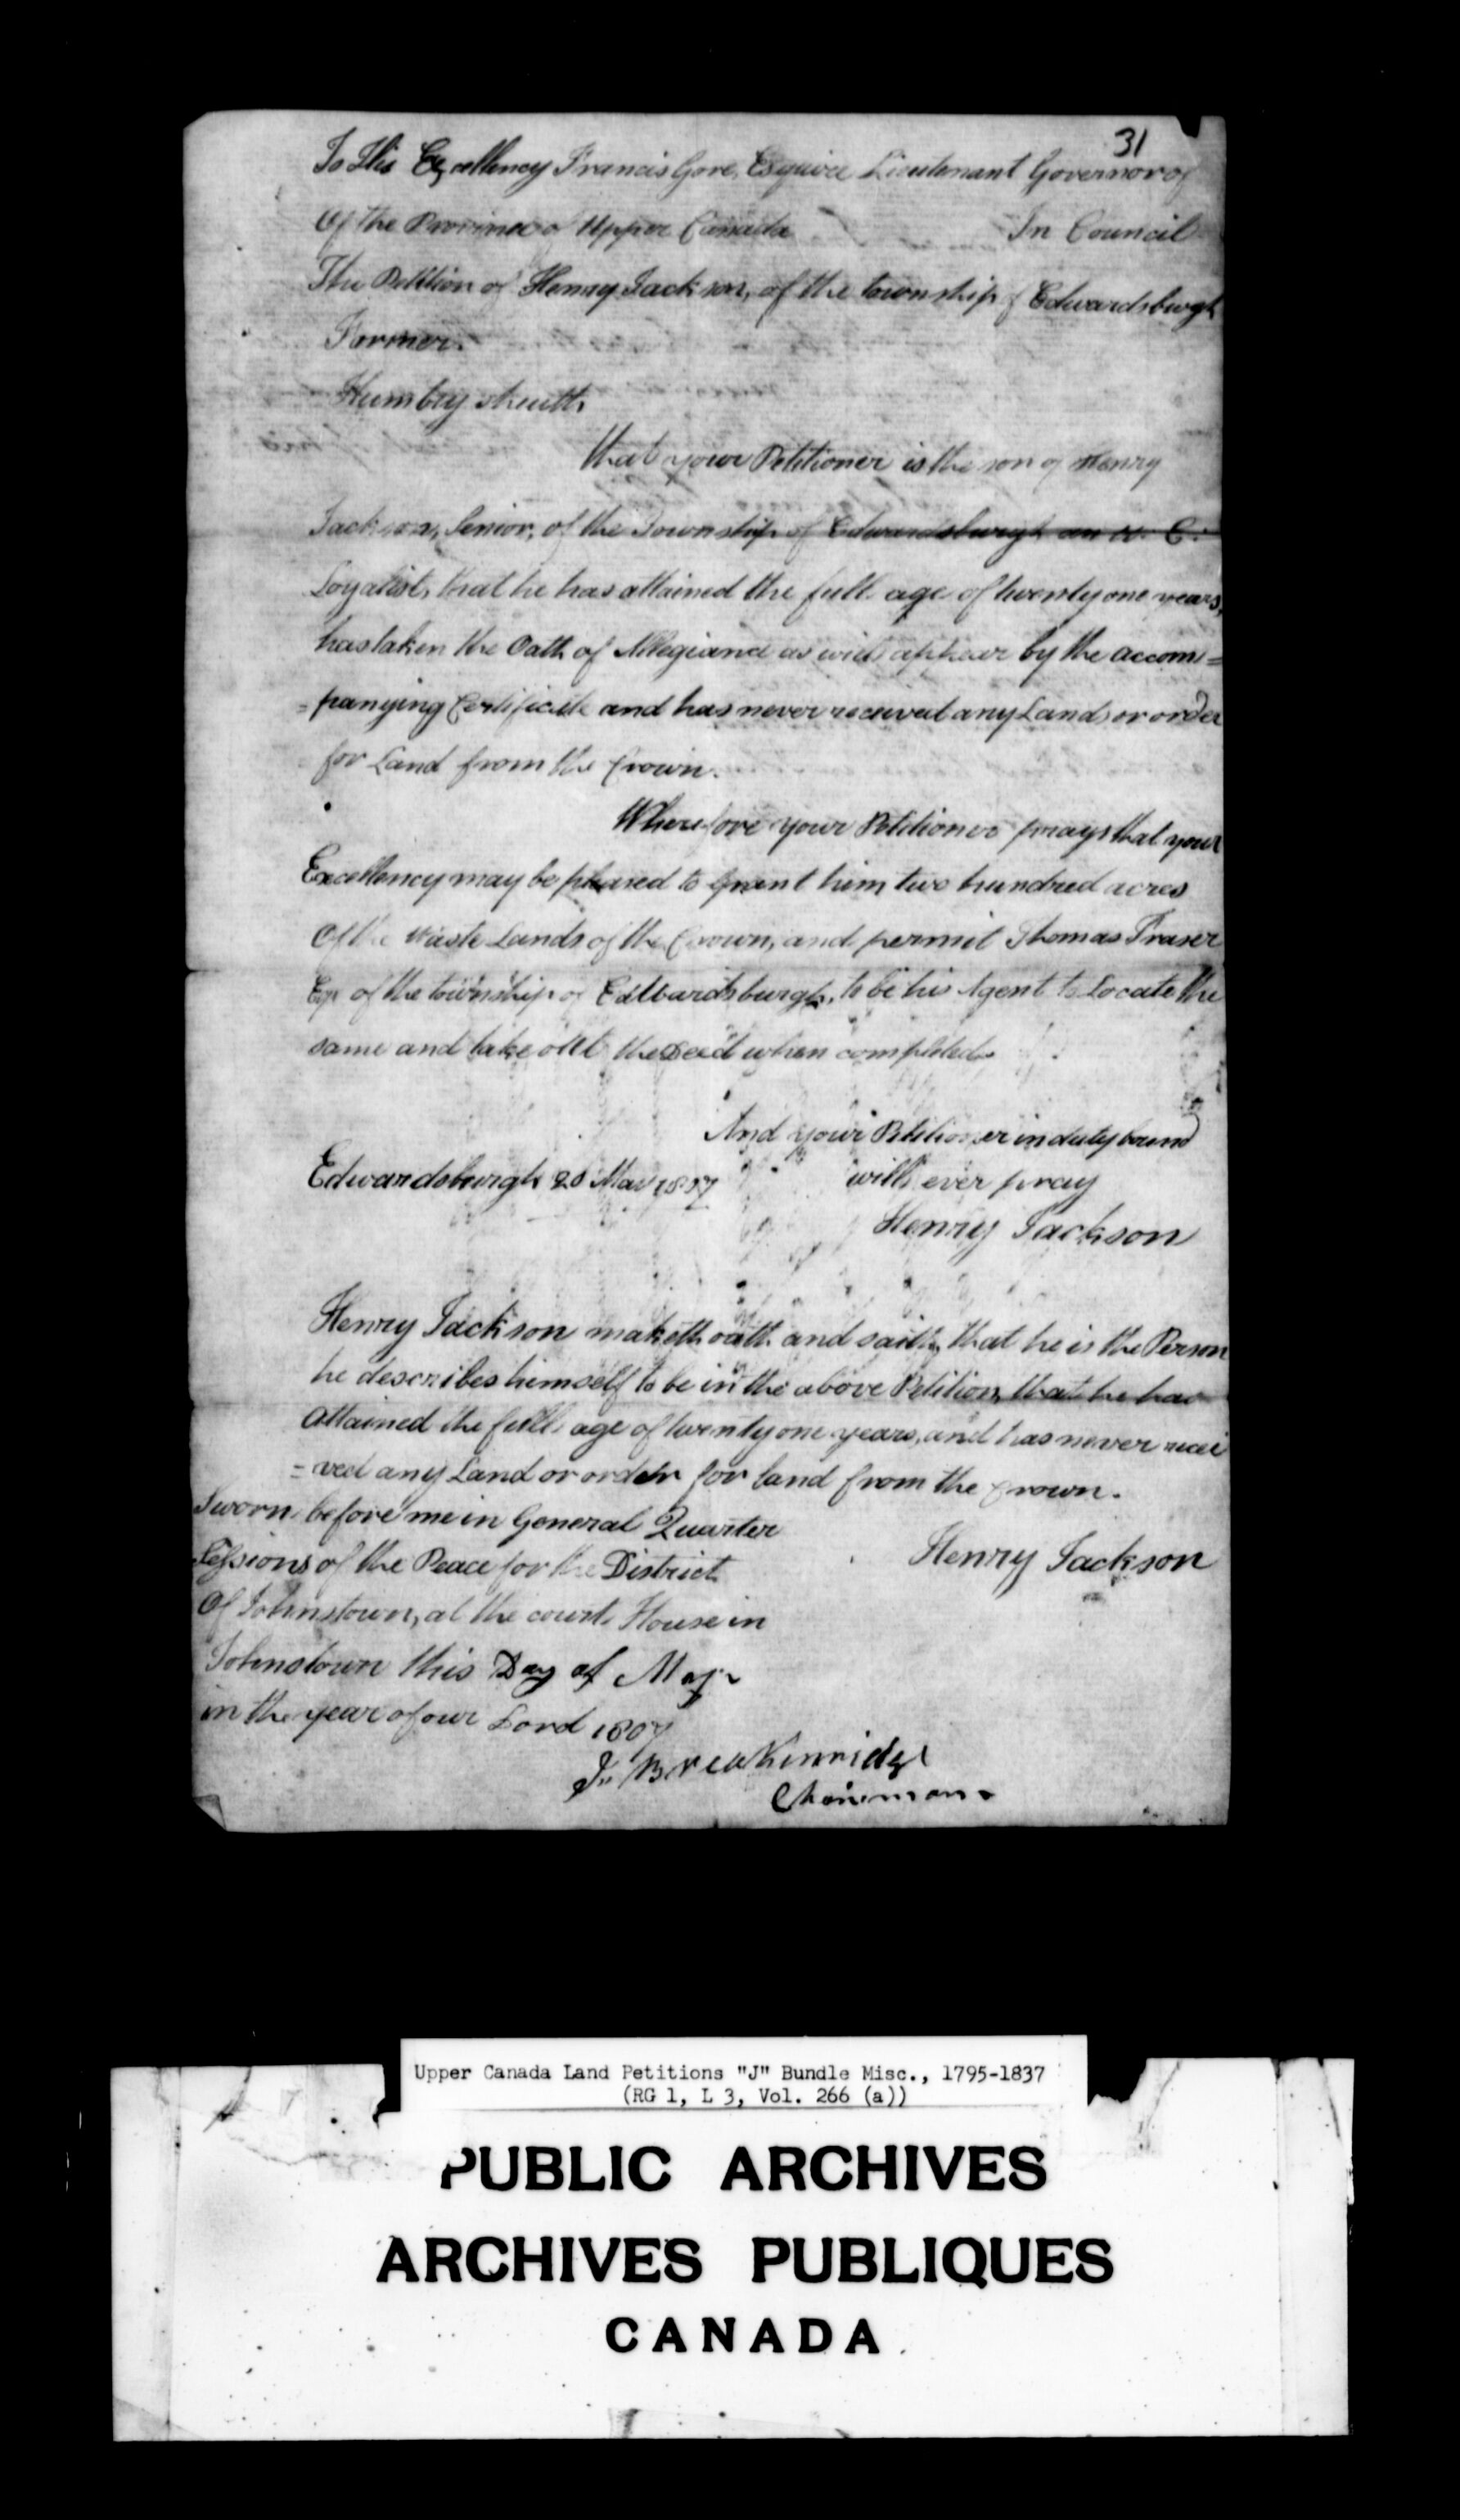 31
To His Excellency Francis Gore, Esquire Lieutenant Governor of
Of the Province of Upper Canada In Council
The Petition of Henry Jackson, of the township of Edwardsburgh
Farmer.
Humbly sheweth
that your Petitioner is the son of Henry
Jackson, Senior, of the Township of Edwardsburgh an U. E.
Loyalist, that he has attained the full age of twenty one years,
has taken the Oath of Allegiance as will appear by the accom=
=panying Certificate and has never received any Lands or order
for Land from the Crown.
Wherefore your Petitioner prays that your
Excellency may be pleased to grant him two hundred acres
Of the Waste Lands of the Crown, and permit Thomas Fraser
Esqr of the township of Edwardsburgh, to be his Agent to Locate the
same and take out the Deed when completed
And your Petitioner in duty bound
Edwardsburgh 20 May 1807 will ever pray
Henry Jackson
Henry Jackson maketh oath and saith, that he is the Person
he describes himself to be in the above Petition, that he has
attained the full age of twenty one years, and has never recei
=ved any Land or order for land from the Crown.
Sworn before me in General Quarter
Sessions of the Peace for the District
Henry Jackson
Of Johnstown, at the court House in
Johnstown this Day of May
in the year of our Lord 1807
Breakenridge
Chairman
Upper Canada Land Petitions "J" Bundle Misc., 1795-1837
(RG 1, L 3, Vol. 266 (a))
PUBLIC ARCHIVES
ARCHIVES PUBLIQUES
CANADA